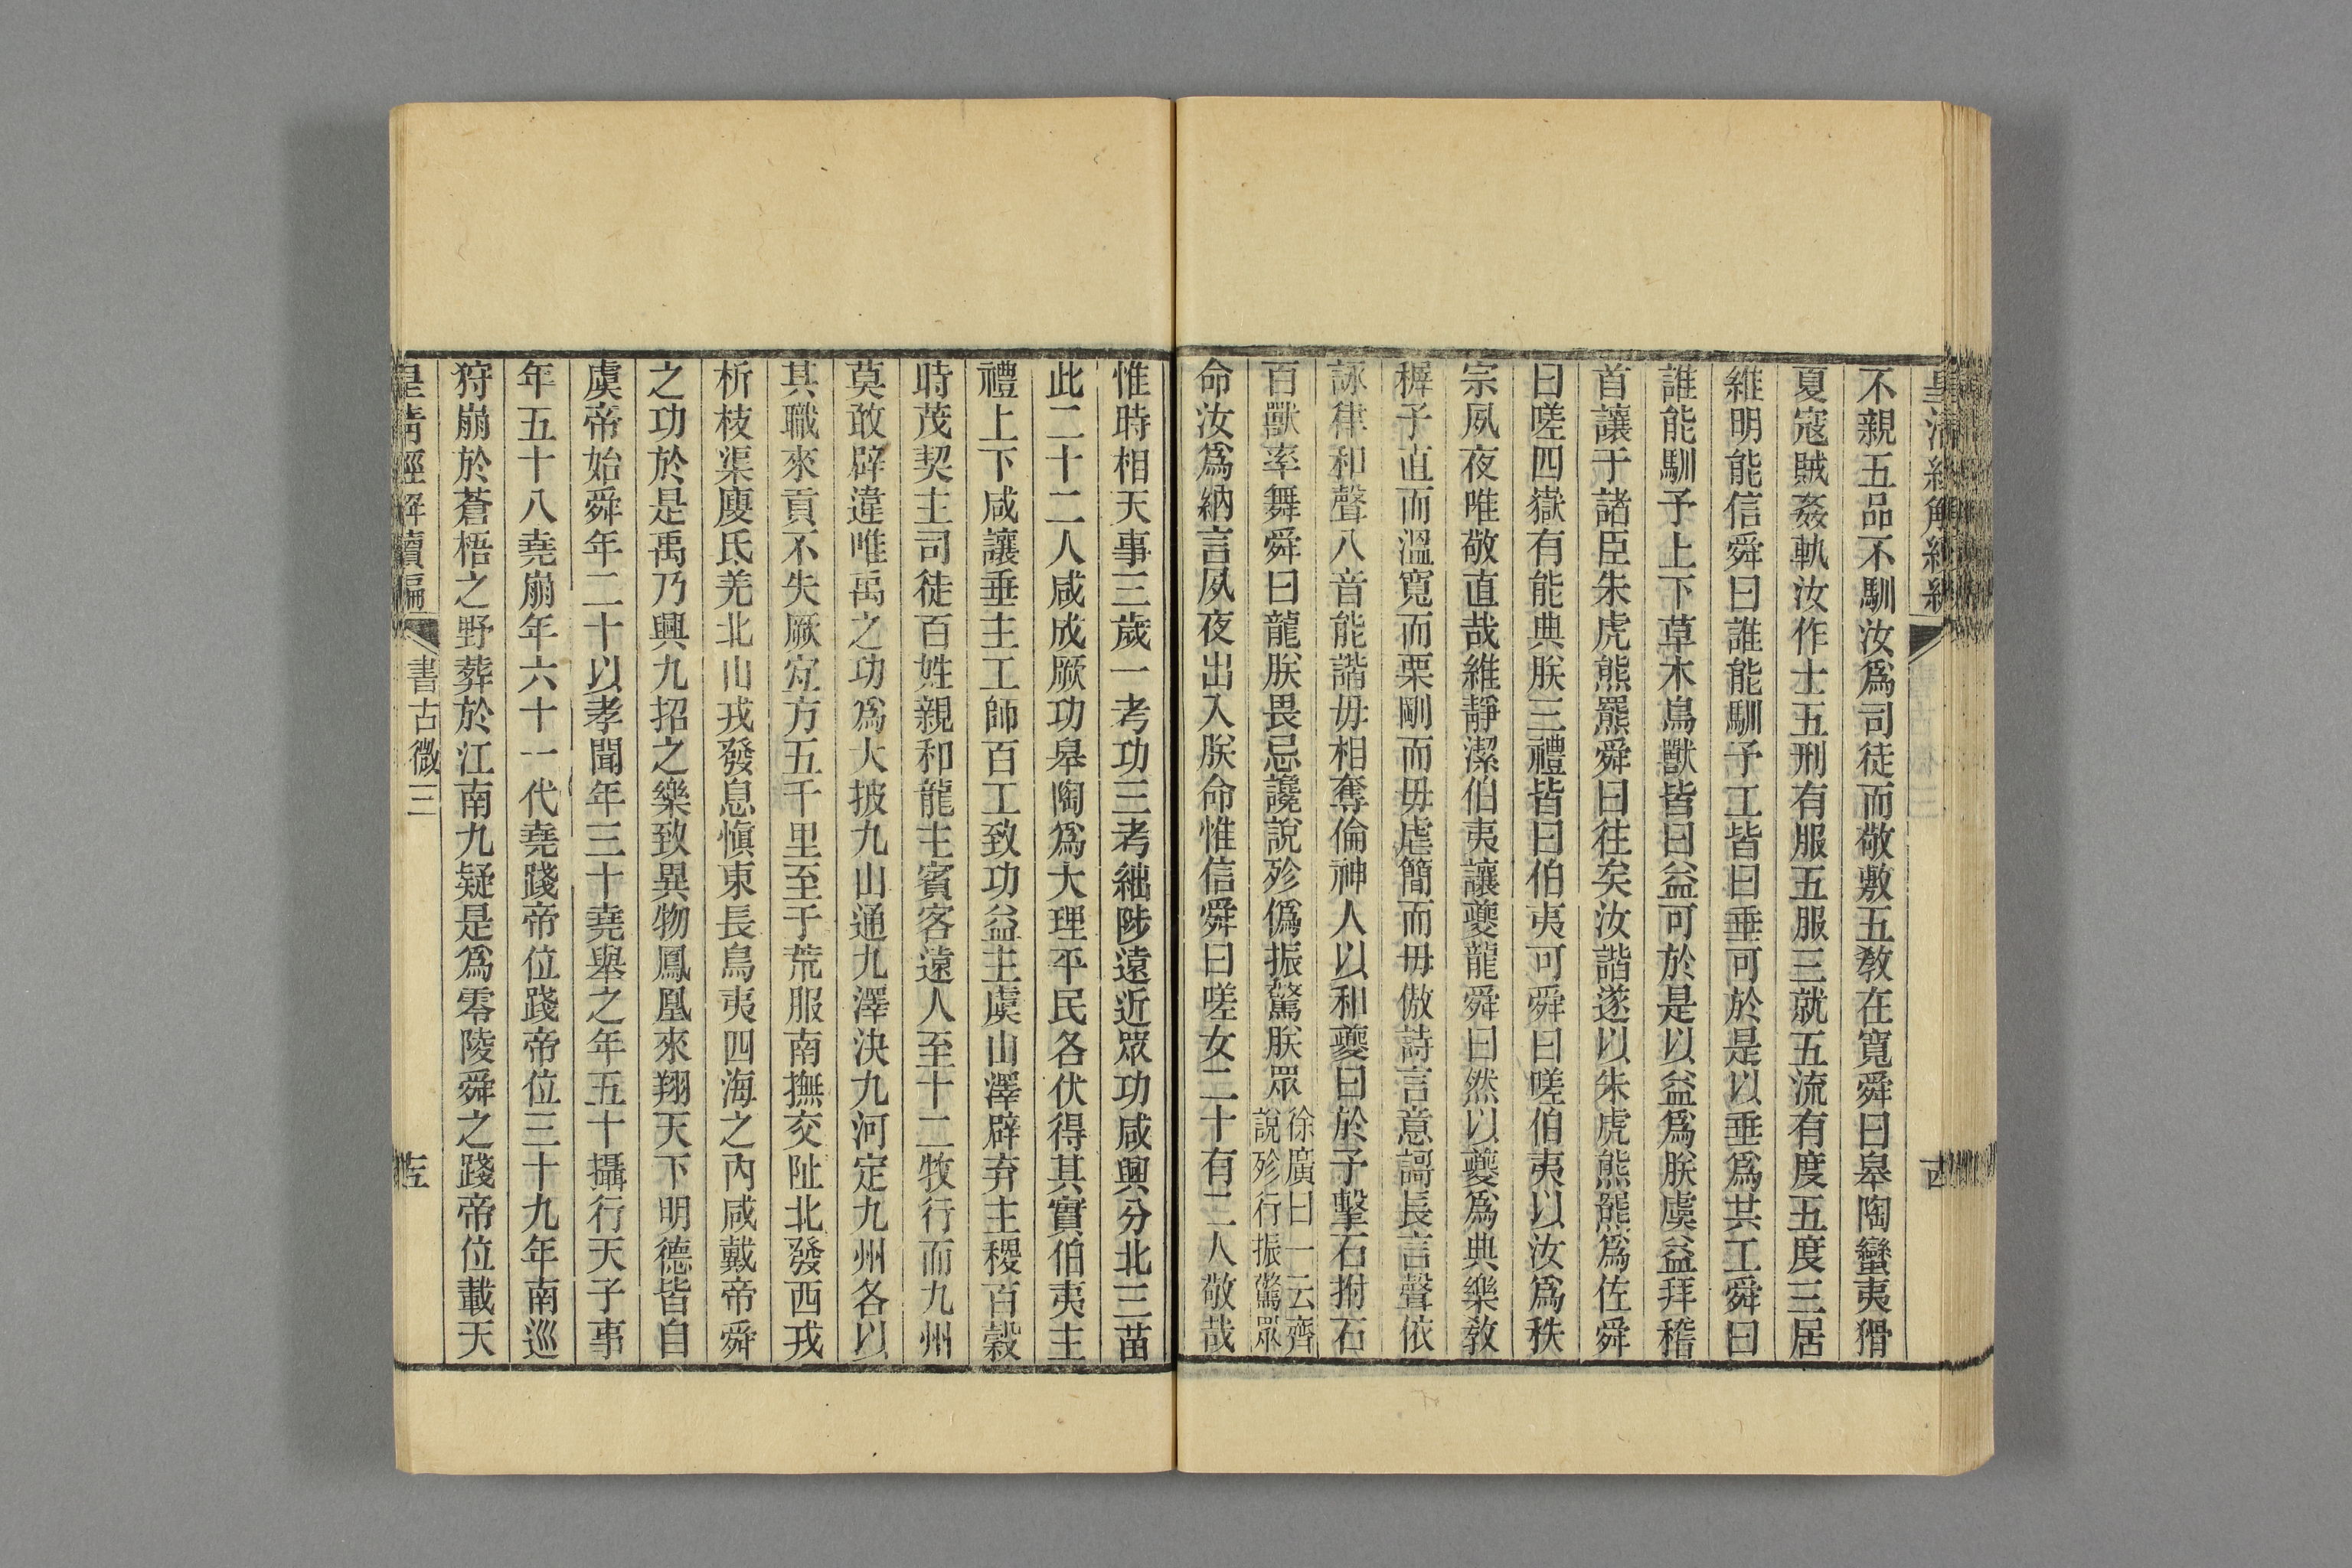 不親五品不馴汝爲司徒而敬敷五敎在寬舜曰皋陶蠻夷猾
夏寇賊姦軌汝作士五刑有服五服三就五流有度五度三居
維明能信舜曰誰能馴予工皆曰垂可於是以垂爲共工舜曰
誰能馴予上下草木鳥獸皆曰益可於是以益爲朕虞益拜稽
首讓于諸臣朱虎熊羆舜曰往矣汝諧遂以朱虎熊羆爲佐舜
曰嗟四嶽有能典朕三禮皆曰伯夷可舜曰嗟伯夷以汝爲秩
宗夙夜唯敬直哉維靜潔伯夷讓夔龍舜曰然以夔爲典樂敎
穉子直而溫寬而栗剛而毋虐簡而毋傲詩言意謌長言聲依
詠律和聲八音能諧毋相奪倫神人以和夔曰於予擊石拊石
百獸率舞舜曰龍朕畏忌讒說殄僞振驚朕眾徐廣曰一云齊
說殄行振驚眾
命汝爲納言夙夜出入朕命惟信舜曰嗟女二十有二人敬哉
惟時相天事三歲一考功三考絀陟遠近眾功咸興分北三苗
此二十二人咸成厥功皋陶爲大理平民各伏得其實伯夷主
禮上下咸讓垂主工師百工致功益主虞山澤辟弃主稷百穀
時茂契主司徒百姓親和龍主賓客遠人至十二牧行而九州
莫敢辟違唯禹之功爲大披九山通九澤決九河定九州各以
其職來貢不失厥宐方五千里至于荒服南撫交阯北發西戎
析枝渠廋氐羌北山戎發息愼東長鳥夷四海之內咸戴帝舜
之功於是禹乃興九招之樂致異物鳳凰來翔天下明德皆自
虞帝始舜年二十以孝聞年三十堯舉之年五十攝行天子事
年五十八堯崩年六十一代堯踐帝位踐帝位三十九年南巡
狩崩於蒼梧之野葬於江南九疑是爲零陵舜之踐帝位載天
皇清經解續編 書古微三